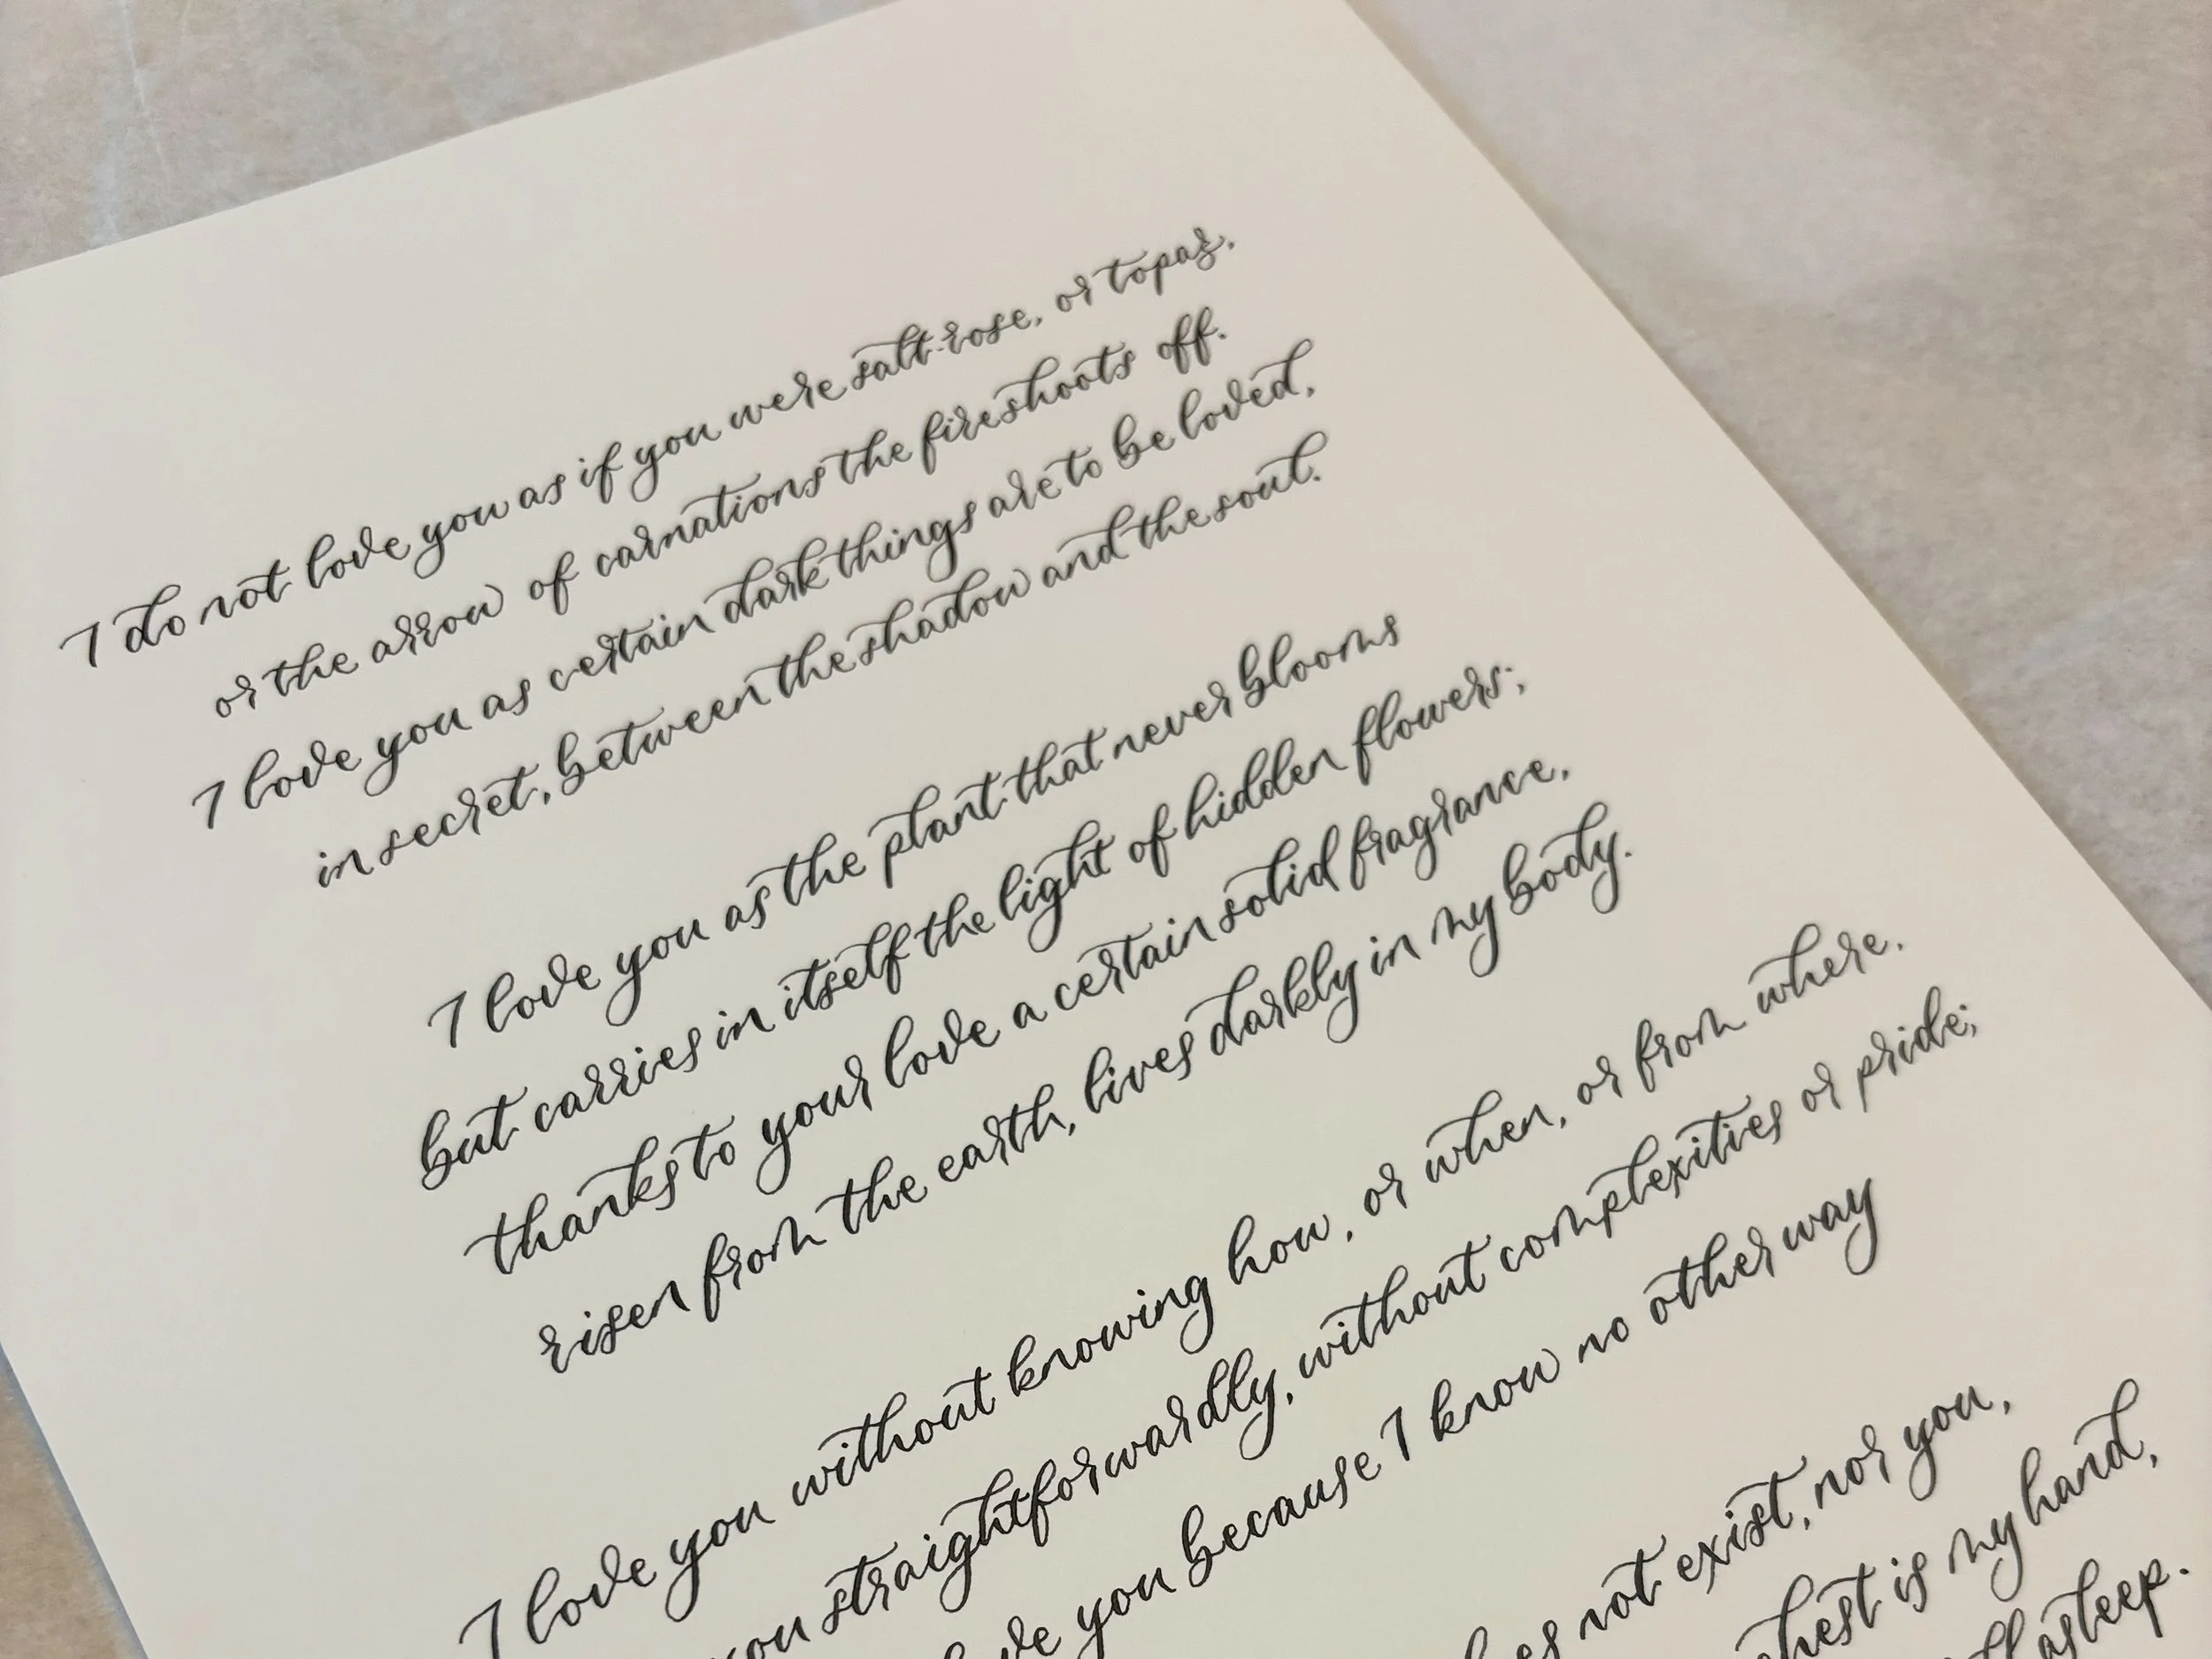 I do not love you as if you were salt-rose, or topaz,
or the arrow of carnations the fire shoots off.
I love you as certain dark things are to be loved,
in secret, between the shadow and the soul.
I love you as the plant that never blooms
but carries in itself the light of hidden flowers;
thanks to your love a certain solid fragrance,
risen from the earth, lives darkly in my body.
I love you without knowing how, or when, or from where.
you straightforwardly, without complexities or pride;
you because I know no other way
not exist, nor you,
is my hand,
asleep.